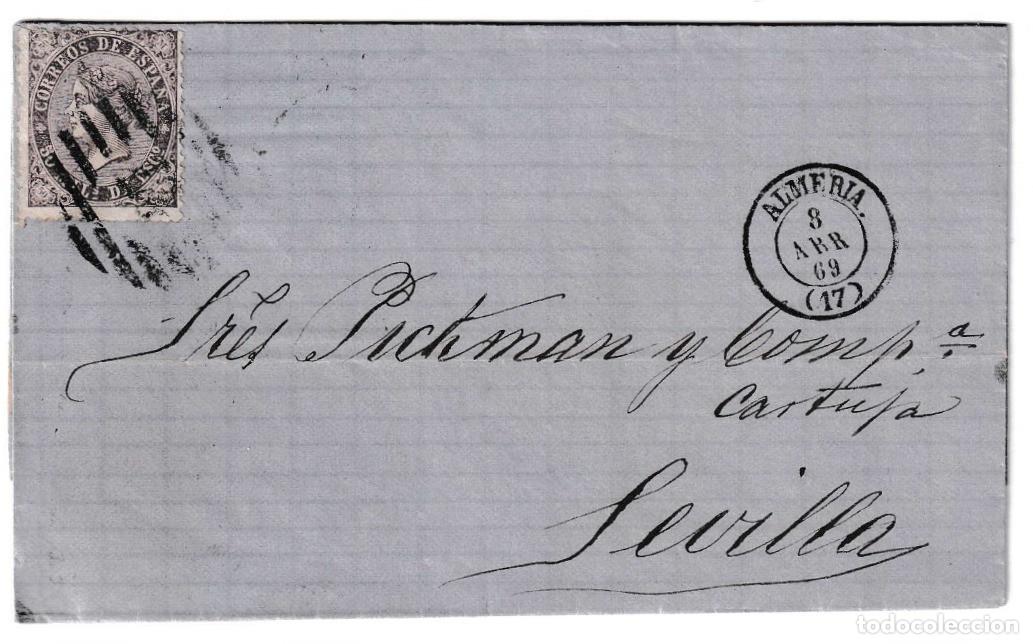 CORREOS DE ESPAÑA
ALMERIA.
8
ABR
69
(17)
Sres Pickman y Comp.a
Cartuja
Sevilla
todocoleccion